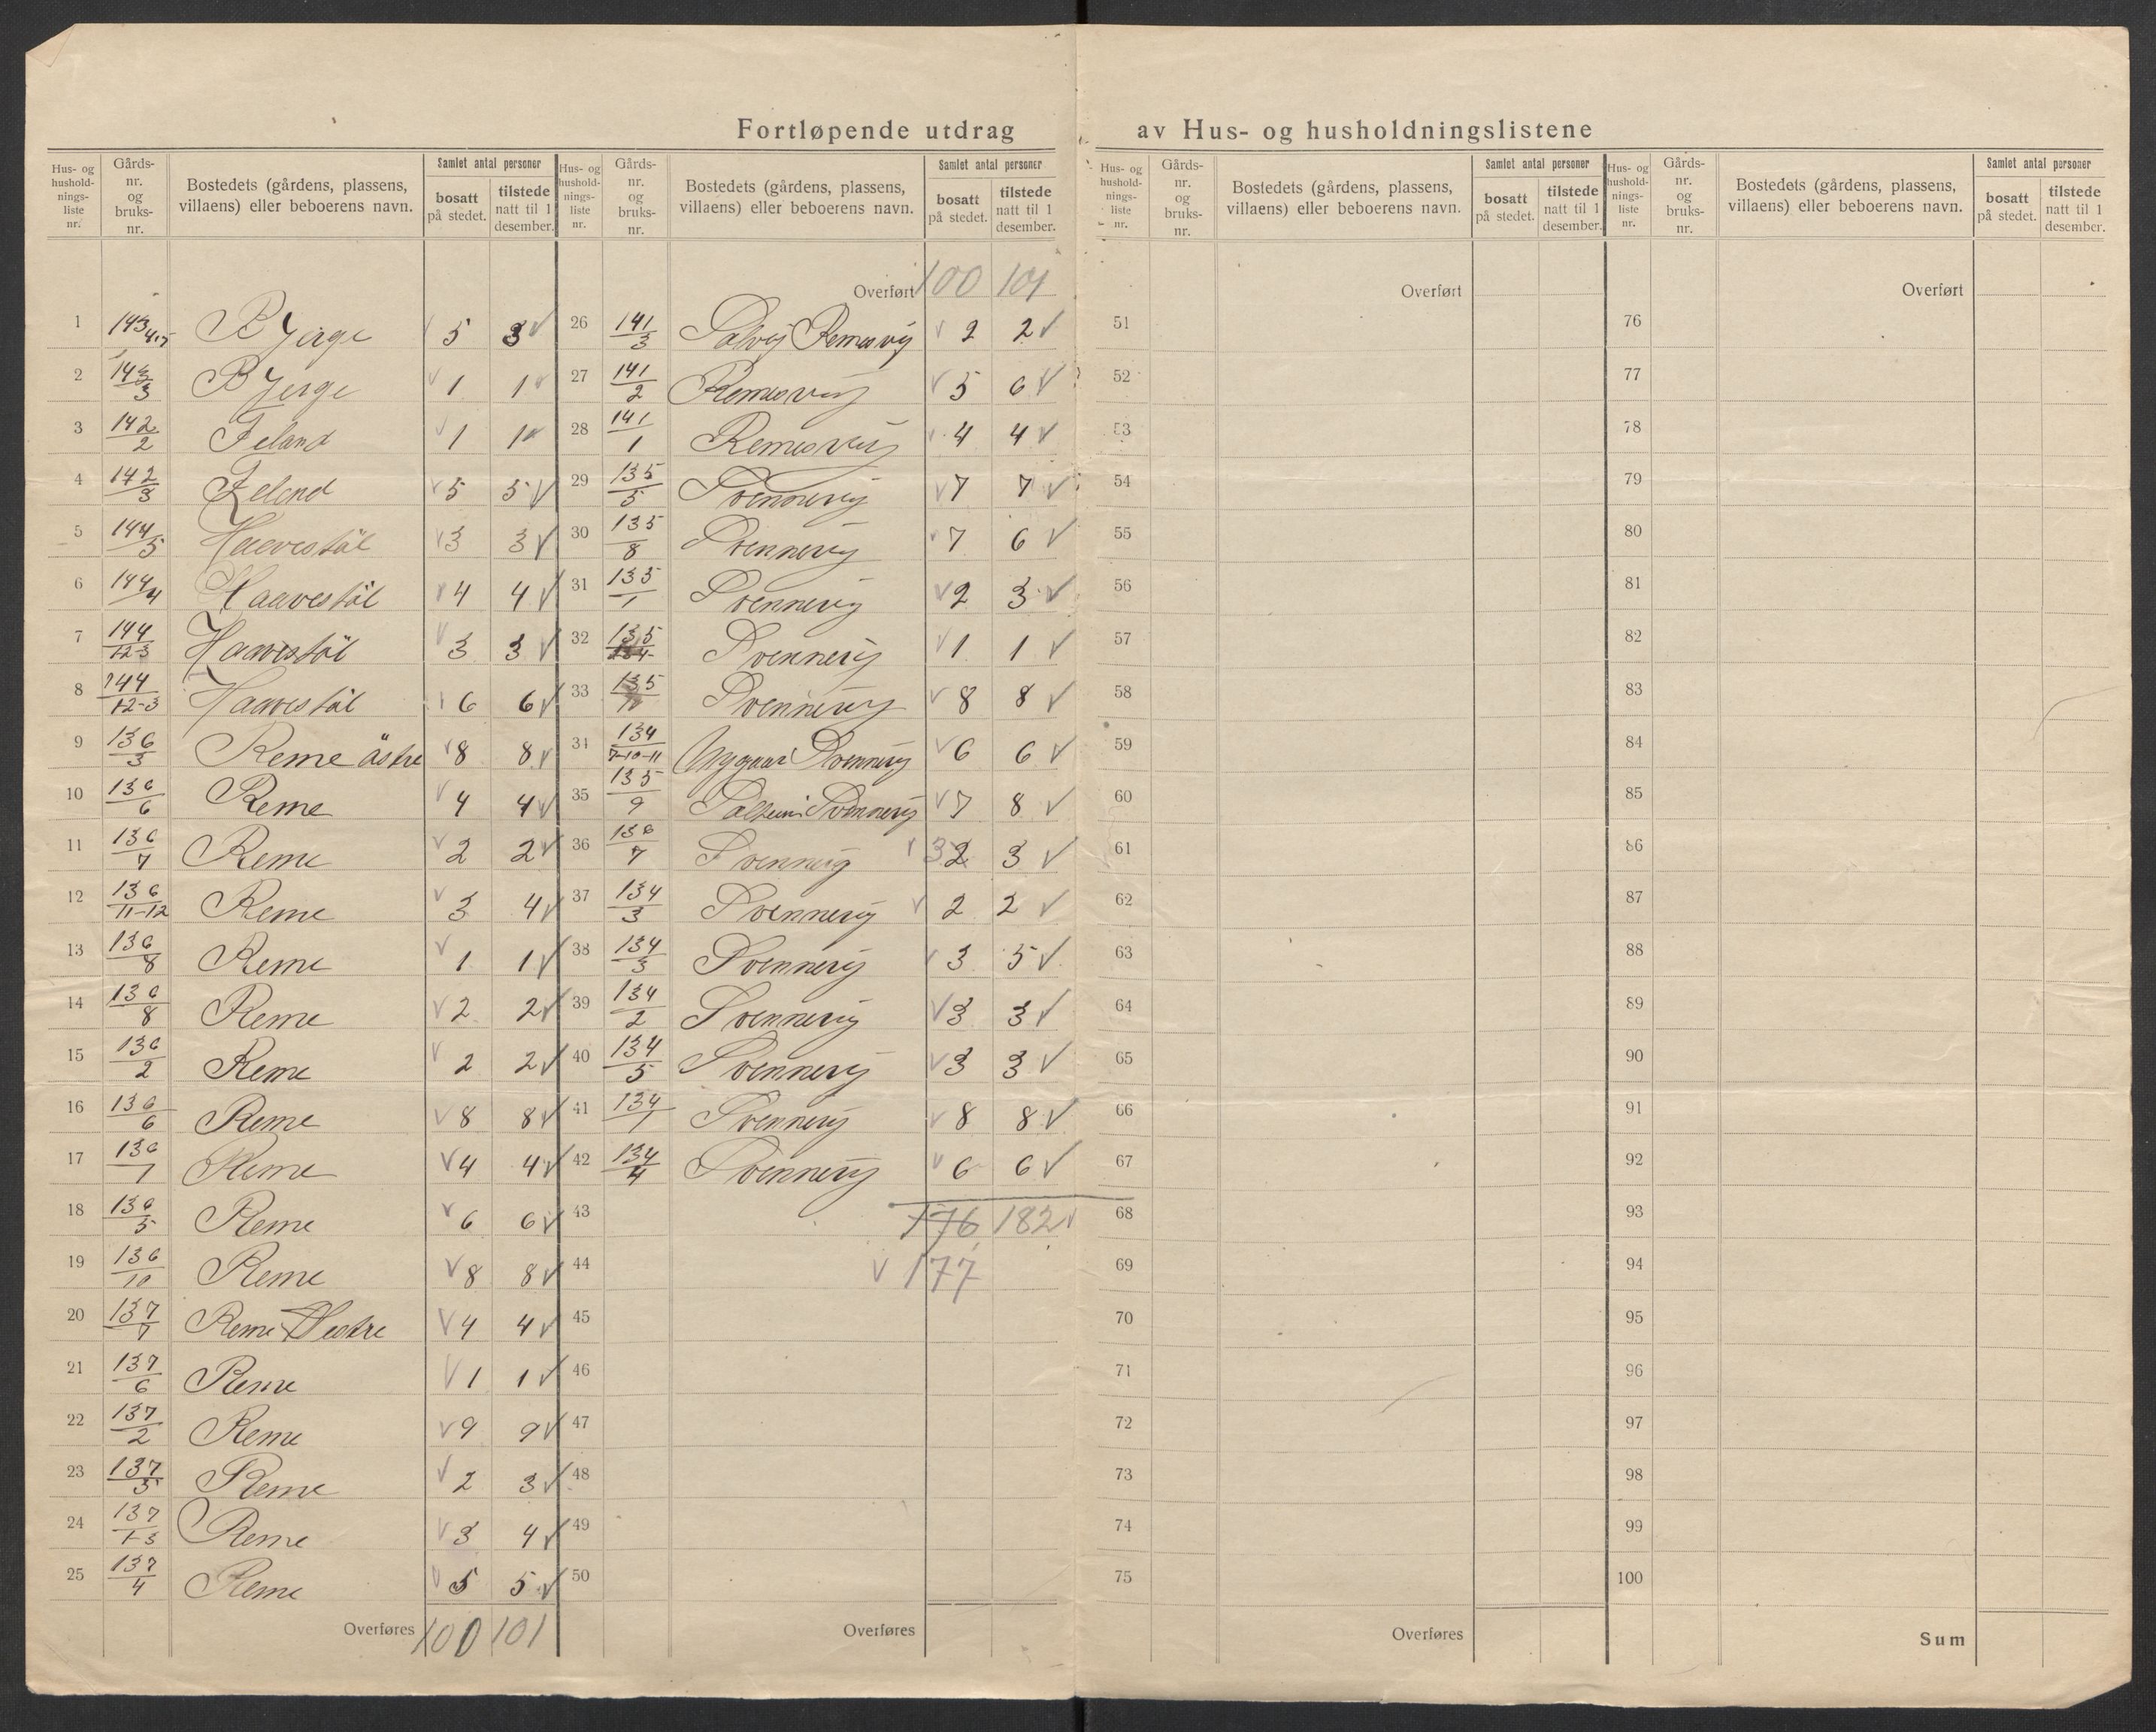 Fortløpende utdrag av Hus- og husholdningslistene
Hus- og husholdningsliste nr. | Gårdsnr. og bruksnr. | Bostedets (gårdens, plassens, villaens) eller beboerens navn. | Samlet antal personer | bosatt på stedet. | tilstede natt til 1 desember.
1 143/4,5 Bjerge 5 3
2 143/3 Bjerge 1 1
3 142/2 Jeland 1 1
4 142/3 Jeland 5 5
5 144/5 Haavestöl 3 3
6 144/4 Haavestöl 4 4
7 144/12-3 Haavestöl 3 3
8 144/12-3 Haavestöl 6 6
9 136/3 Reme östre 8 8
10 136/6 Reme 4 4
11 136/7 Reme 2 2
12 136/11-12 Reme 3 4
13 136/8 Reme 1 1
14 136/8 Reme 2 2
15 136/2 Reme 2 2
16 136/6 Reme 8 8
17 136/1 Reme 4 4
18 136/5 Reme 6 6
19 136/10 Reme 8 8
20 137/7 Reme Vestre 4 4
21 137/6 Reme 1 1
22 137/2 Reme 9 9
23 137/5 Reme 2 3
24 137/1-3 Reme 3 4
25 137/4 Reme 5 5
Overføres 100 101
Hus- og husholdningsliste nr. | Gårdsnr. og bruksnr. | Bostedets (gårdens, plassens, villaens) eller beboerens navn. | Samlet antal personer | bosatt på stedet. | tilstede natt til 1 desember.
Overført 100 101
26 141/3 Solvig Remesvig 2 2
27 141/2 Remesvig 5 6
28 141/1 Remesvig 4 4
29 135/5 Svennevig 7 7
30 135/8 Svennevig 7 6
31 135/1 Svennevig 2 3
32 135 Svennevig 1 1
33 135 Svennevig 8 8
34 134/7-10-11 Nygaar Svennevig 6 6
35 135/9 Solheim Svennevig 7 8
36 136/7 Svennevig 3 2 3
37 134/3 Svennevig 2 2
38 134/3 Svennevig 3 5
39 134/2 Svennevig 3 3
40 134/5 Svennevig 3 3
41 134/1 Svennevig 8 8
42 134/4 Svennevig 6 6
43 176 182
44 177
45
46
47
48
49
50
Overføres
Hus- og husholdningsliste nr. | Gårdsnr. og bruksnr. | Bostedets (gårdens, plassens, villaens) eller beboerens navn. | Samlet antal personer | bosatt på stedet. | tilstede natt til 1 desember.
Overført
51
52
53
54
55
56
57
58
59
60
61
62
63
64
65
66
67
68
69
70
71
72
73
74
75
Overføres
Hus- og husholdningsliste nr. | Gårdsnr. og bruksnr. | Bostedets (gårdens, plassens, villaens) eller beboerens navn. | Samlet antal personer | bosatt på stedet. | tilstede natt til 1 desember.
Overført
76
77
78
79
80
81
82
83
84
85
86
87
88
89
90
91
92
93
94
95
96
97
98
99
100
Sum